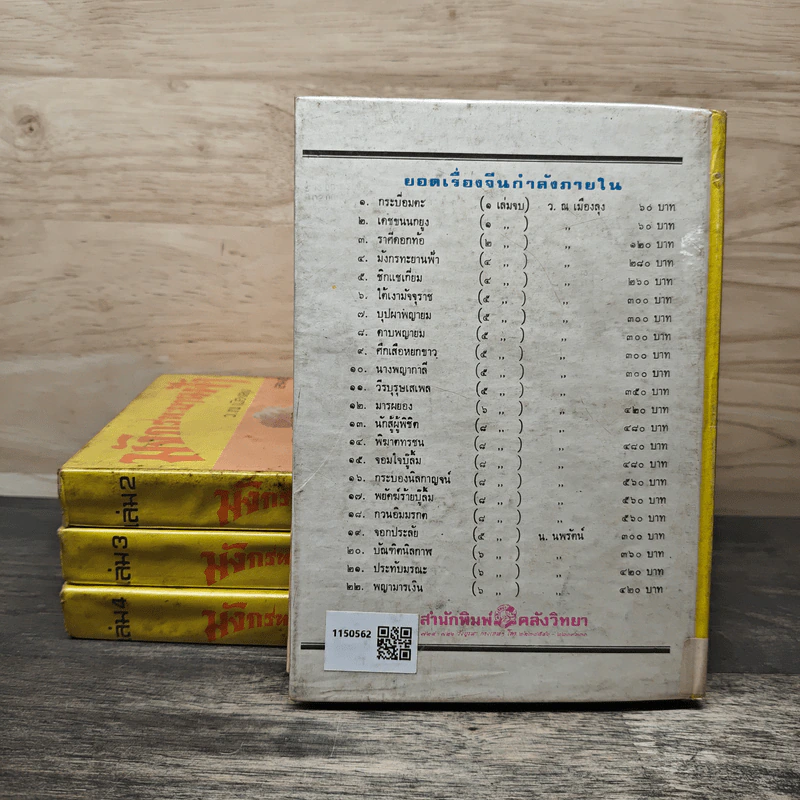 ยอดเรื่องจีนกำลังภายใน
๑. กระบี่อมตะ (๑ เล่มจบ) ว. ณ เมืองลุง ๖๐ บาท
๒. เดชขนนกยูง (๑ ,, ) ,, ๖๐ บาท
๓. ราศีดอกท้อ (๒ ,, ) ,, ๑๒๐ บาท
๔. มังกรทะยานฟ้า (๔ ,, ) ,, ๒๘๐ บาท
๕. ชิกแชเกี่ยม (๔ ,, ) ,, ๒๖๐ บาท
๖. ใต้เงามัจจุราช (๕ ,, ) ,, ๓๐๐ บาท
๗. บุปผาพญายม (๕ ,, ) ,, ๓๐๐ บาท
๘. ดาบพญายม (๕ ,, ) ,, ๓๐๐ บาท
๙. ศึกเสือหยกขาว (๕ ,, ) ,, ๓๐๐ บาท
๑๐. นางพญากาลี (๕ ,, ) ,, ๓๐๐ บาท
๑๑. วีรบุรุษเสเพล (๕ ,, ) ,, ๓๕๐ บาท
๑๒. มารผยอง (๖ ,, ) ,, ๔๒๐ บาท
๑๓. นักสู้ผู้พิชิต (๘ ,, ) ,, ๔๘๐ บาท
๑๔. พิฆาตทรชน (๘ ,, ) ,, ๔๘๐ บาท
๑๕. จอมใจบู๊ลิ้ม (๘ ,, ) ,, ๔๘๐ บาท
๑๖. กระบองนิลกาญจน์ (๘ ,, ) ,, ๕๖๐ บาท
๑๗. พยัคฆ์ร้ายบู๊ลิ้ม (๘ ,, ) ,, ๕๖๐ บาท
๑๘. กวนอิมมรกต (๘ ,, ) ,, ๕๖๐ บาท
๑๙. จอกประลัย (๕ ,, ) น. นพรัตน์ ๓๐๐ บาท
๒๐. บัณฑิตนิลภาพ (๖ ,, ) ,, ๓๖๐ บาท
๒๑. ประทับมรณะ (๖ ,, ) ,, ๔๒๐ บาท
๒๒. พญามารเงิน (๖ ,, ) ,, ๔๒๐ บาท
สำนักพิมพ์ คลังวิทยา
1150562
มังกรทะยานฟ้า
ว. ณ เมืองลุง
เล่ม 2 มังกรท
เล่ม 3 มังกรท
เล่ม 4 มังกรท